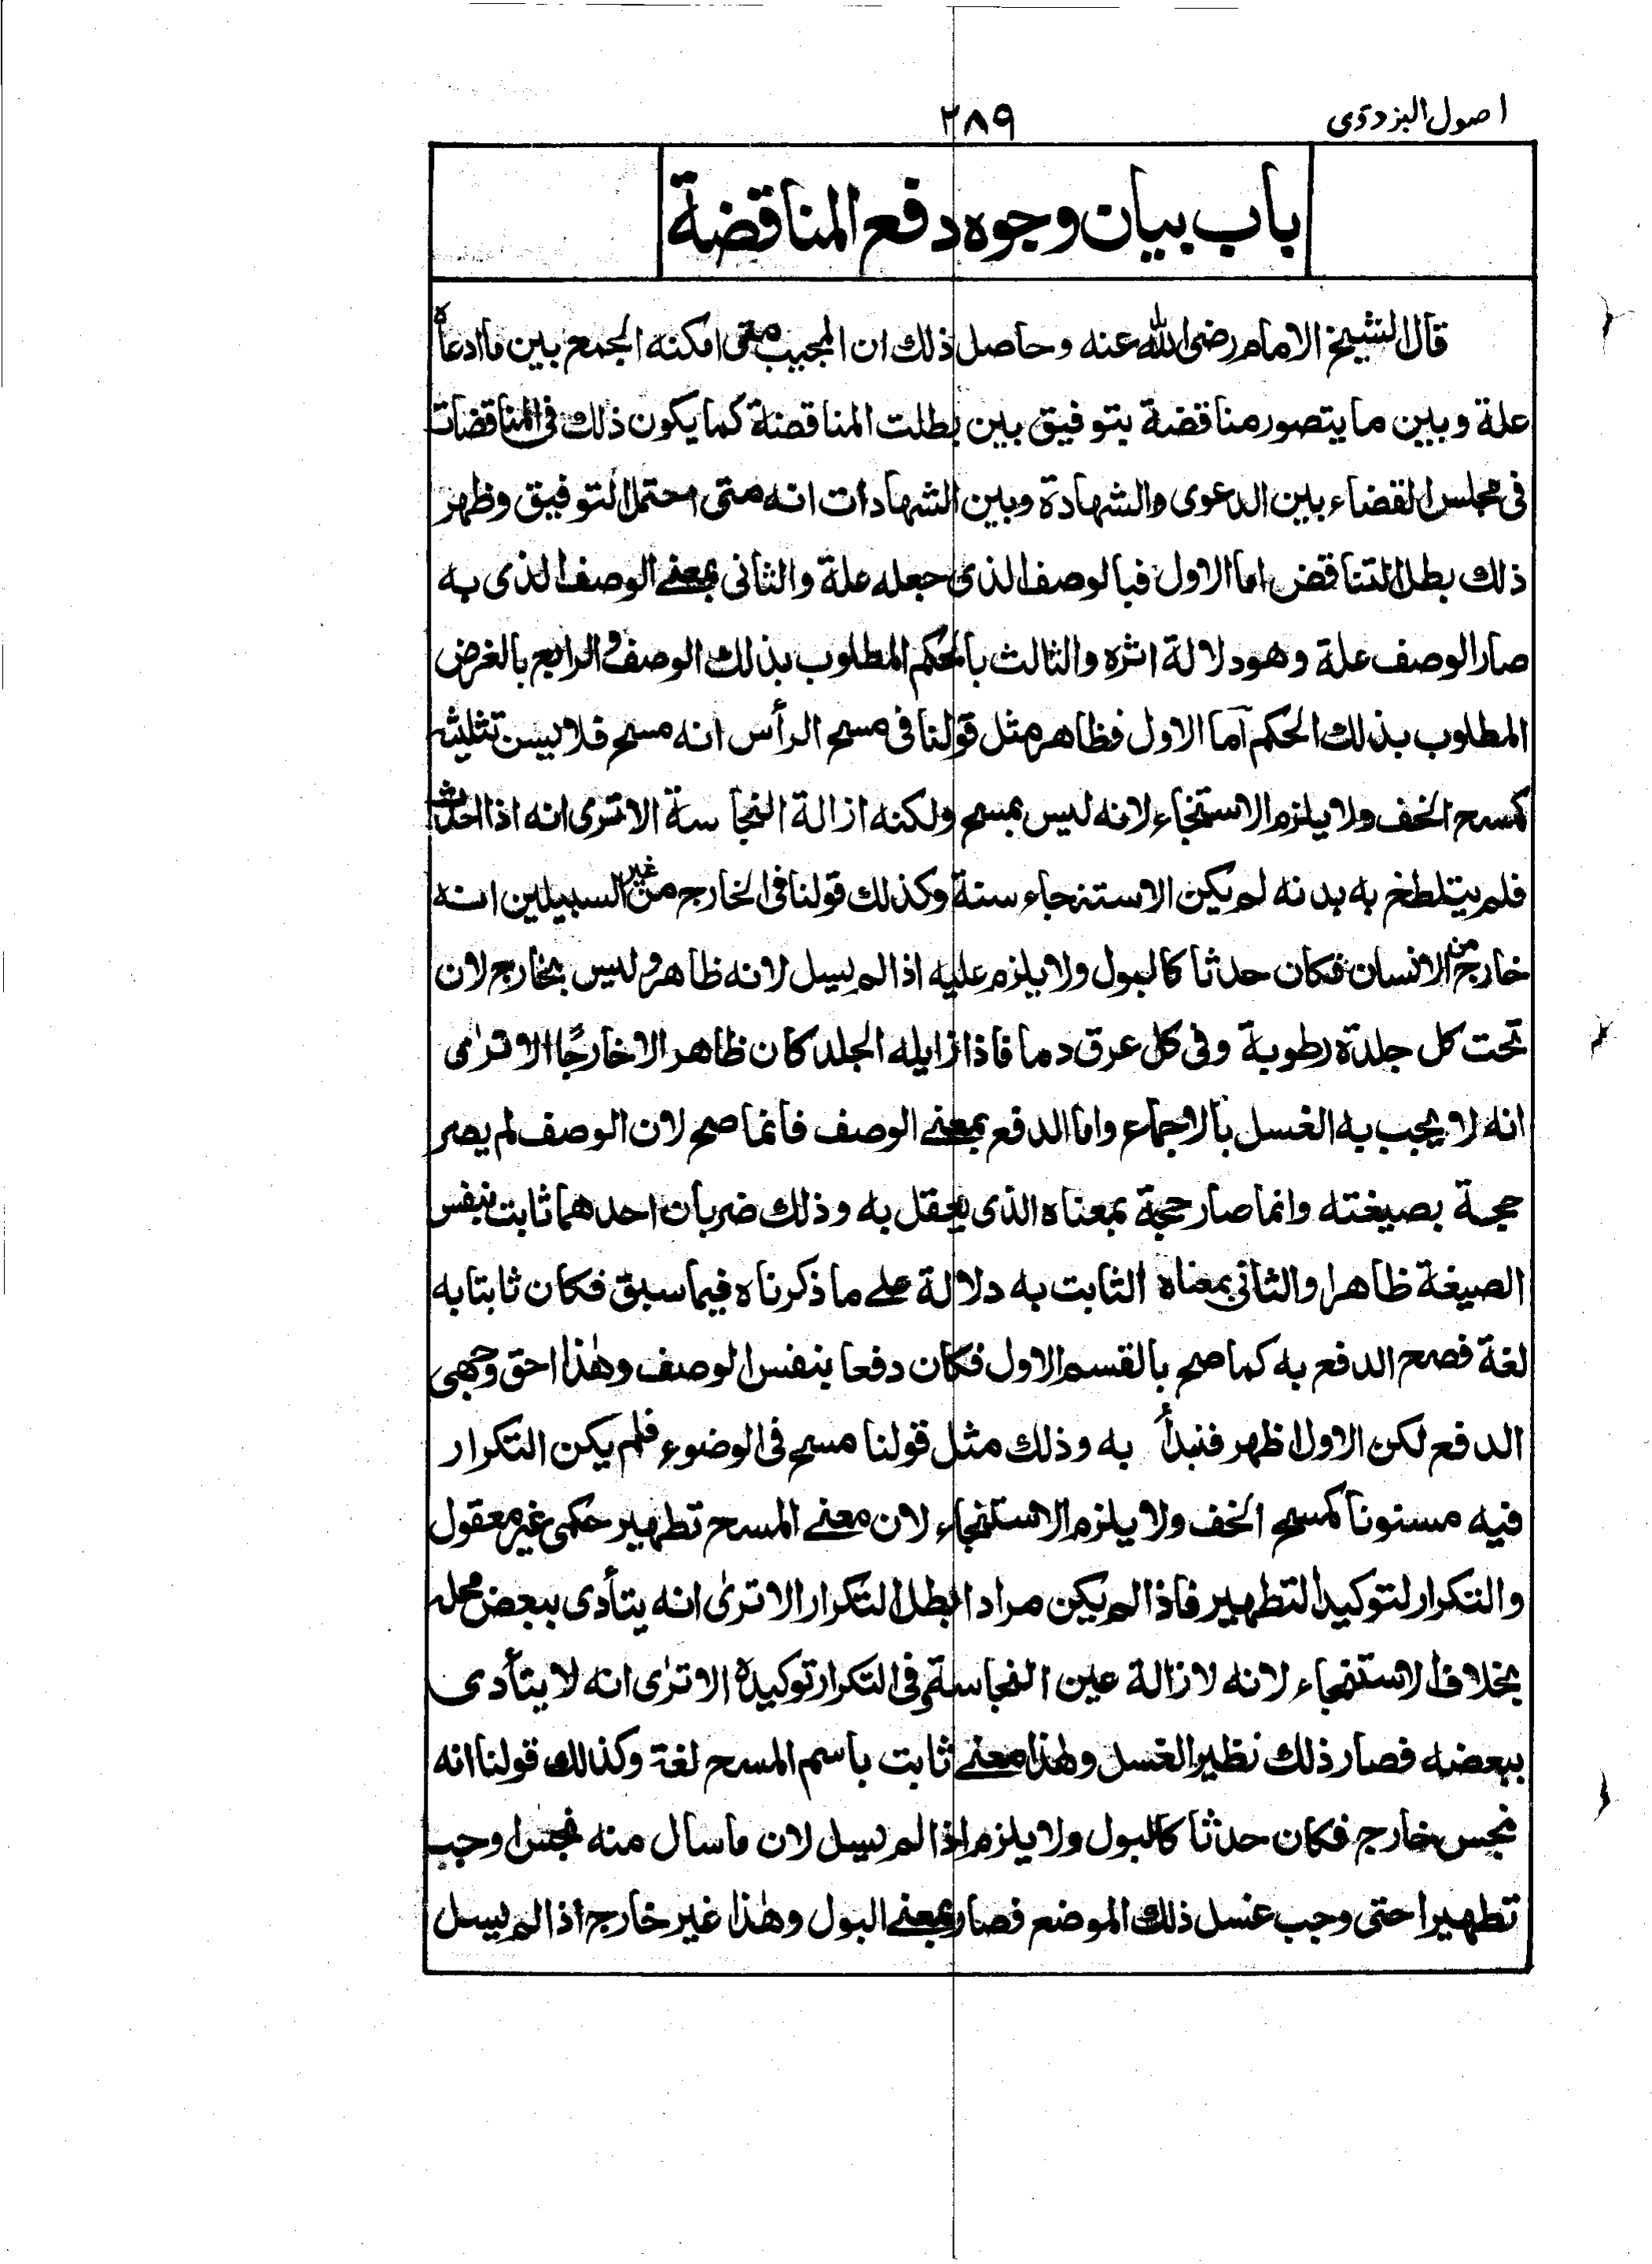 اصول البزدوى
٢٨٩
باب بيان وجوه دفع المناقضة
قال الشيخ الامام رضى الله عنه وحاصل ذلك ان المجيب متى امكنه الجمع بين ما ادعاه
علة وبين ما يتصور مناقضة بتوفيق بين بطلت المناقضة كما يكون ذلك فى المناقضات
فى مجلس القضاء بين الدعوى والشهادة وبين الشهادات انه متى احتمل التوفيق وظهر
ذلك بطل التناقض اما الاول فبالوصف الذى جعله علة والثانى بمعنے الوصف الذى به
صار الوصف علة وهو دلالة اثره والثالث بالحكم المطلوب بذلك الوصف والرابع بالغرض
المطلوب بذلك الحكم اما الاول فظاهر مثل قولنا فى مسح الرأس انه مسح فلا يسن تثليثه
كمسح الخف ولا يلزم الاستنجاء لانه ليس بمسح ولكنه ازالة النجاسة الا ترى انه اذا احدث
فلم يتلطخ به بدنه لم يكن الاستنجاء سنة وكذلك قولنا فى الخارج من غير السبيلين انه
خارج من الانسان فكان حدثا كالبول ولا يلزم عليه اذا لم يسل لانه ظاهر وليس بخارج لان
تحت كل جلدة رطوبة وفى كل عرق دما فاذا زايله الجلد كان ظاهر الا خارجًا الا ترٰى
انه لا يجب به الغسل بالاجماع واما الدفع بمعنے الوصف فانما صح لان الوصف لم يصر
حجة بصيغته وانما صار حجة بمعناه الذى يعقل به وذلك ضربان احدهما ثابت بنفس
الصيغة ظاهرا والثانى بمعناه الثابت به دلالة علے ما ذكرناه فيما سبق فكان ثابتا به
لغة فصح الدفع به كما صح بالقسم الاول فكان دفعا بنفس الوصف وهٰذا احق وجهى
الدفع لكن الاول اظهر فنبدأ به وذلك مثل قولنا مسح فى الوضوء فلم يكن التكرار
فيه مسنونا كمسح الخف ولا يلزم الاستنجاء لان معنے المسح تطهير حكمى غير معقول
والتكرار لتوكيد التطهير فاذا لم يكن مرادا بطل التكرار الا ترٰى انه يتأدى ببعض محله
بخلاف الاستنجاء لانه لازالة عين النجاسة وفى التكرار توكيده الا ترٰى انه لا يتأدى
ببعضه فصار ذلك نظير الغسل وهٰذا معنے ثابت باسم المسح لغة وكذلك قولنا انه
نجس خارج فكان حدثا كالبول ولا يلزم اذا لم يسل لان ما سال منه نجس اوجب
تطهيرا حتى وجب غسل ذلك الموضع فصار بمعنے البول وهٰذا غير خارج اذا لم يسل